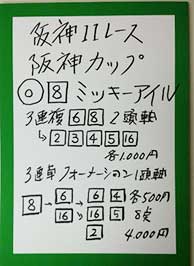 阪神11レース
阪神カップ
◎8 ミッキーアイル
3連複 6 8 2頭軸
→ 2 3 4 5 16
各1.000円
3連単フォーメーション1頭軸
8 → 6 → 6 4 各500円
16 → 16 5 8点
2 4.000円